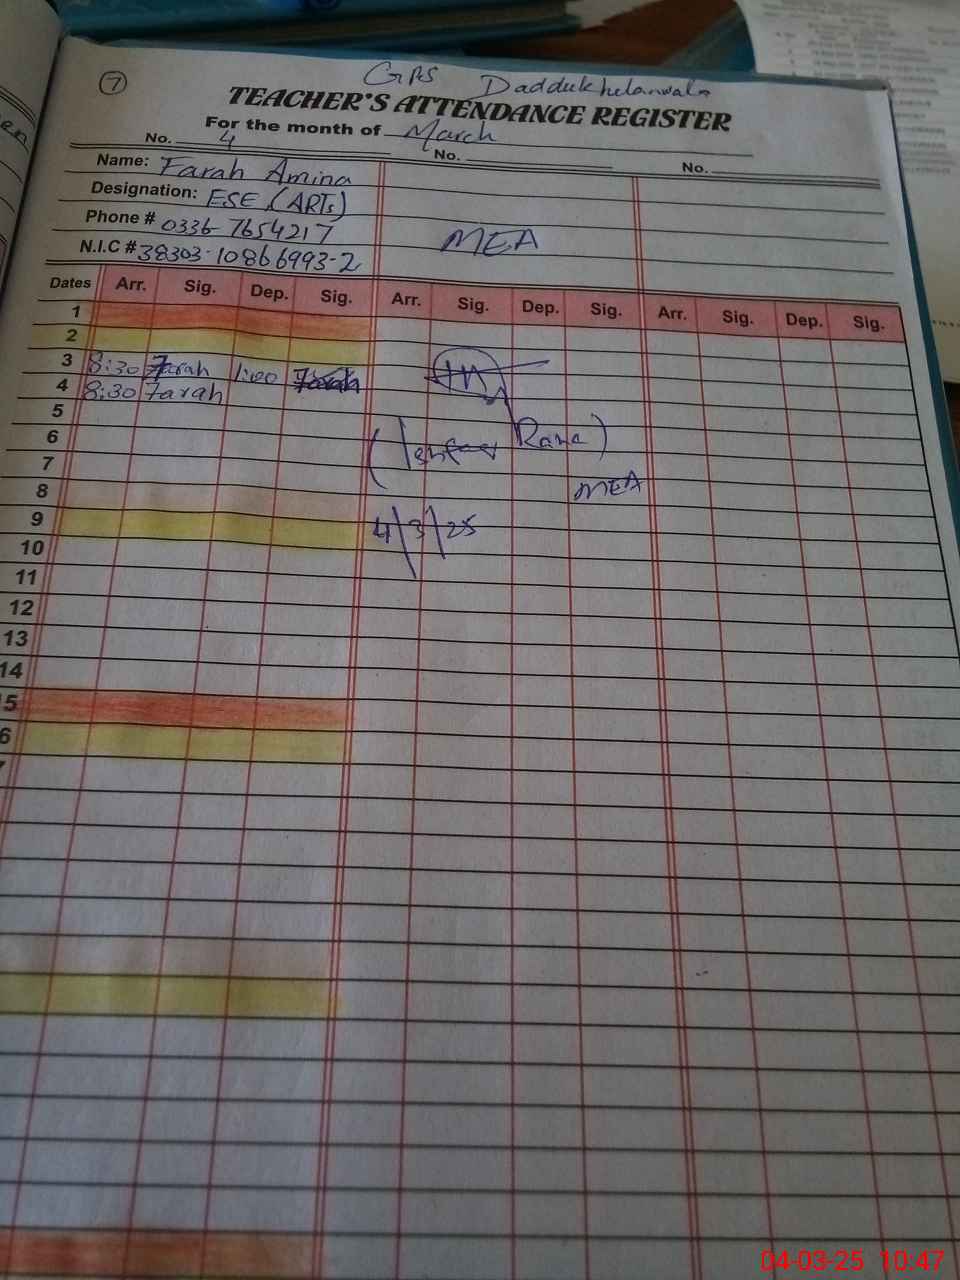 7
GPS Daddukhelanwala
TEACHER'S ATTENDANCE REGISTER
For the month of March
No. 4 No. No.
Name: Farah Amina
Designation: ESE (ARTs)
Phone # 0336-7654217
MEA
N.I.C # 38303-10866993-2
Dates Arr. Sig. Dep. Sig. Arr. Sig. Dep. Sig. Arr. Sig. Dep. Sig.
1
2
3 8:30 Farah 1:00 Farah
4 8:30 Farah
5
6 Rana)
7
8 MEA
9 4/3/25
10
11
12
13
14
15
16
04-03-25 10:47